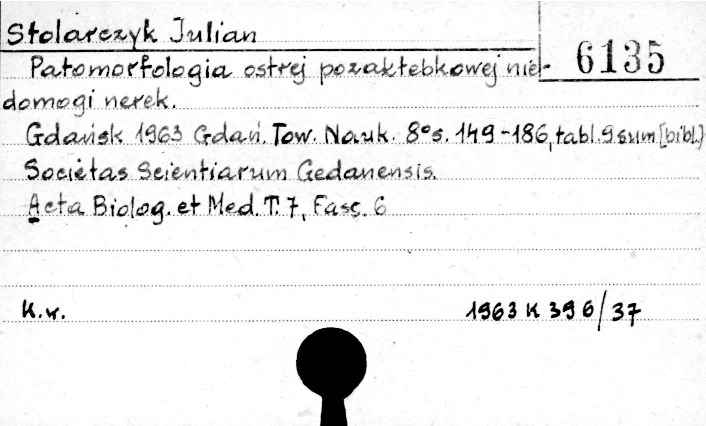 Stolarczyk Julian
6135
Patomorfologia ostrej pozakłębkowej nie-
domogi nerek.
Gdańsk 1963 Gdań. Tow. Nauk. 8° s. 149-186, tabl. 9 sum [bibl.]
Societas Scientiarum Gedanensis.
Acta Biolog. et Med. T. 7, Fasc. 6
K.w.
1963 K 396/37